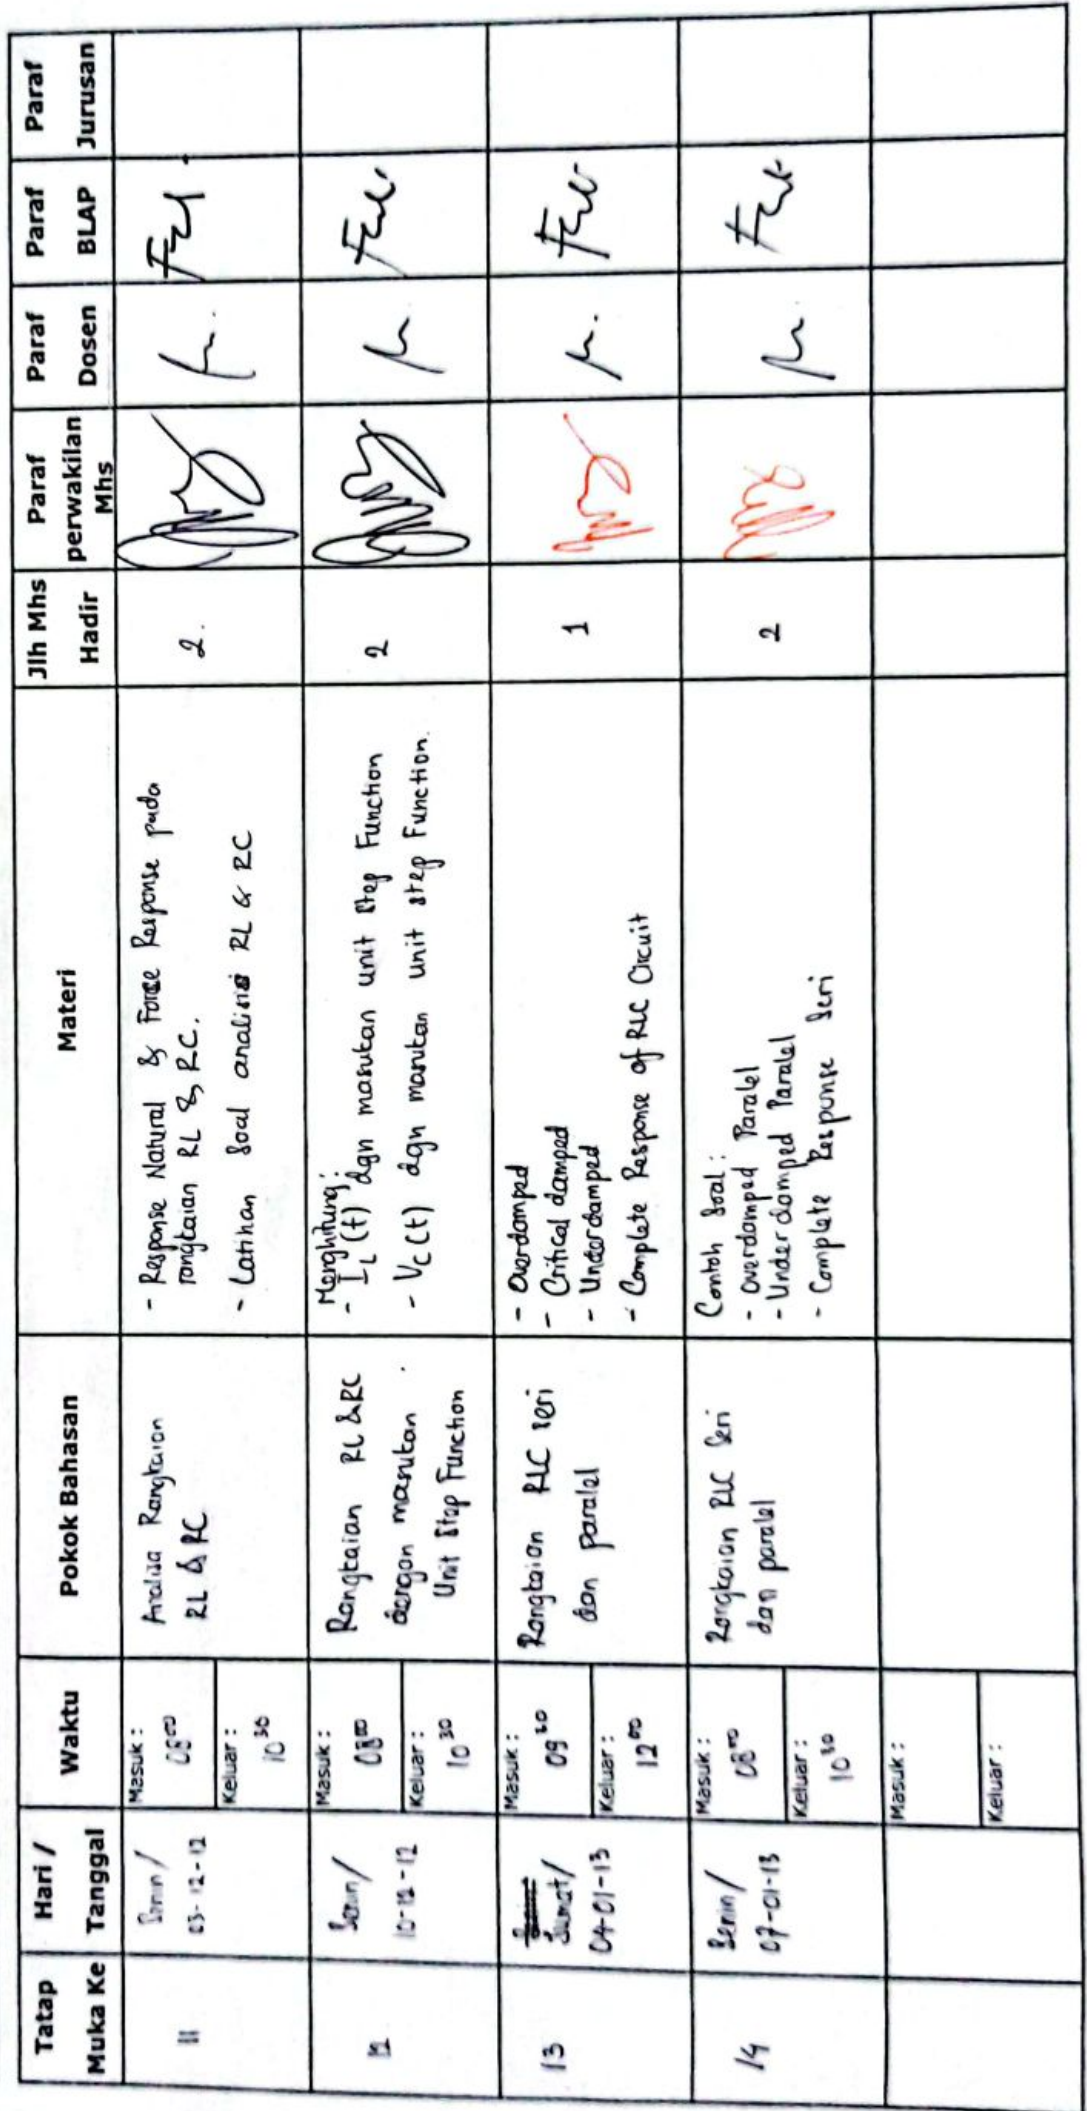 Tatap Muka Ke
Hari / Tanggal
Waktu
Pokok Bahasan
Materi
Jlh Mhs Hadir
Paraf perwakilan Mhs
Paraf Dosen
Paraf BLAP
Paraf Jurusan
11
Senin /
03-12-12
Masuk :
08⁰⁰
Keluar :
10³⁰
Analisa Rangkaian
RL & RC
- Response Natural & Force Response pada
rangkaian RL & RC.
- Latihan Soal analisis RL & RC
2.
12
Senin /
10-12-12
Masuk :
08⁰⁰
Keluar :
10³⁰
Rangkaian RL & RC
dengan masukan
Unit Step Function
Menghitung :
- I_L (t) dgn masukan unit Step Function
- V_C (t) dgn masukan unit step Function.
2
13
Jumat /
04-01-13
Masuk :
09³⁰
Keluar :
12⁰⁰
Rangkaian RLC seri
dan paralel
- Overdamped
- Critical damped
- Underdamped
- Complete Response of RLC Circuit
1
14
Senin /
07-01-13
Masuk :
08⁰⁰
Keluar :
10³⁰
Rangkaian RLC Seri
dan paralel
Contoh Soal :
- Overdamped Paralel
- Underdamped Paralel
- Complete Response Seri
2
Masuk :
Keluar :